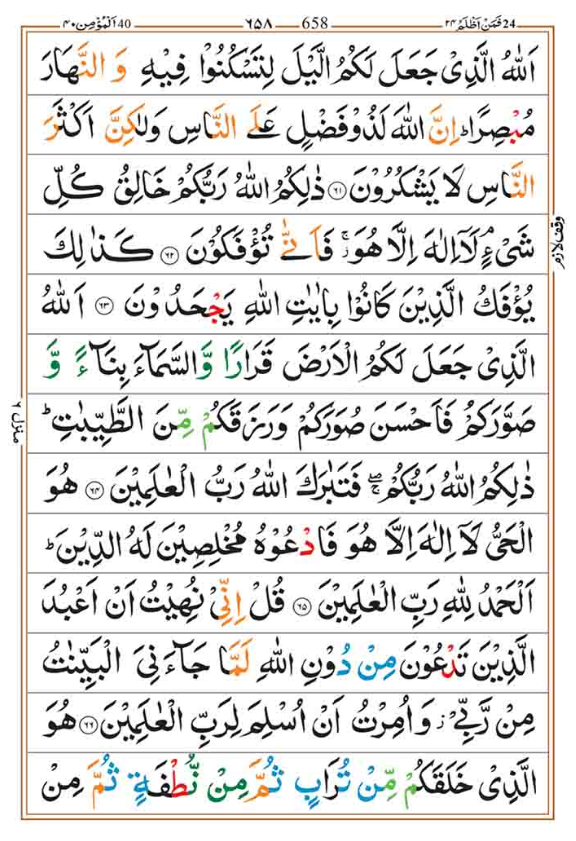 24 فَمَنْ اَظْلَمُ ٢٤ 658 ٦٥٨ 40 اَلْمُؤْمِن ٤٠
اَللّٰهُ الَّذِىْ جَعَلَ لَكُمُ الَّيْلَ لِتَسْكُنُوْا فِيْهِ وَ النَّهَارَ
مُبْصِرًا ؕ اِنَّ اللّٰهَ لَذُوْ فَضْلٍ عَلَى النَّاسِ وَلٰكِنَّ اَكْثَرَ
النَّاسِ لَا يَشْكُرُوْنَ ﴿۶۱﴾ ذٰلِكُمُ اللّٰهُ رَبُّكُمْ خَالِقُ كُلِّ
شَىْءٍ ۘ لَاۤ اِلٰهَ اِلَّا هُوَ ۚ فَاَنّٰى تُؤْفَكُوْنَ ﴿۶۲﴾ كَذٰلِكَ
وقف لازم
يُؤْفَكُ الَّذِيْنَ كَانُوْا بِاٰيٰتِ اللّٰهِ يَجْحَدُوْنَ ﴿۶۳﴾ اَللّٰهُ
الَّذِىْ جَعَلَ لَكُمُ الْاَرْضَ قَرَارًا وَّالسَّمَآءَ بِنَآءً وَّ
صَوَّرَكُمْ فَاَحْسَنَ صُوَرَكُمْ وَرَزَقَكُمْ مِّنَ الطَّيِّبٰتِ ؕ
منزل ٦
ذٰلِكُمُ اللّٰهُ رَبُّكُمْ ۖۚ فَتَبٰرَكَ اللّٰهُ رَبُّ الْعٰلَمِيْنَ ﴿۶۴﴾ هُوَ
الْحَىُّ لَاۤ اِلٰهَ اِلَّا هُوَ فَادْعُوْهُ مُخْلِصِيْنَ لَهُ الدِّيْنَ ؕ
اَلْحَمْدُ لِلّٰهِ رَبِّ الْعٰلَمِيْنَ ﴿۶۵﴾ قُلْ اِنِّىْ نُهِيْتُ اَنْ اَعْبُدَ
الَّذِيْنَ تَدْعُوْنَ مِنْ دُوْنِ اللّٰهِ لَمَّا جَآءَنِىَ الْبَيِّنٰتُ
مِنْ رَّبِّىْ ۫ وَاُمِرْتُ اَنْ اُسْلِمَ لِرَبِّ الْعٰلَمِيْنَ ﴿۶۶﴾ هُوَ
الَّذِىْ خَلَقَكُمْ مِّنْ تُرَابٍ ثُمَّ مِنْ نُّطْفَةٍ ثُمَّ مِنْ